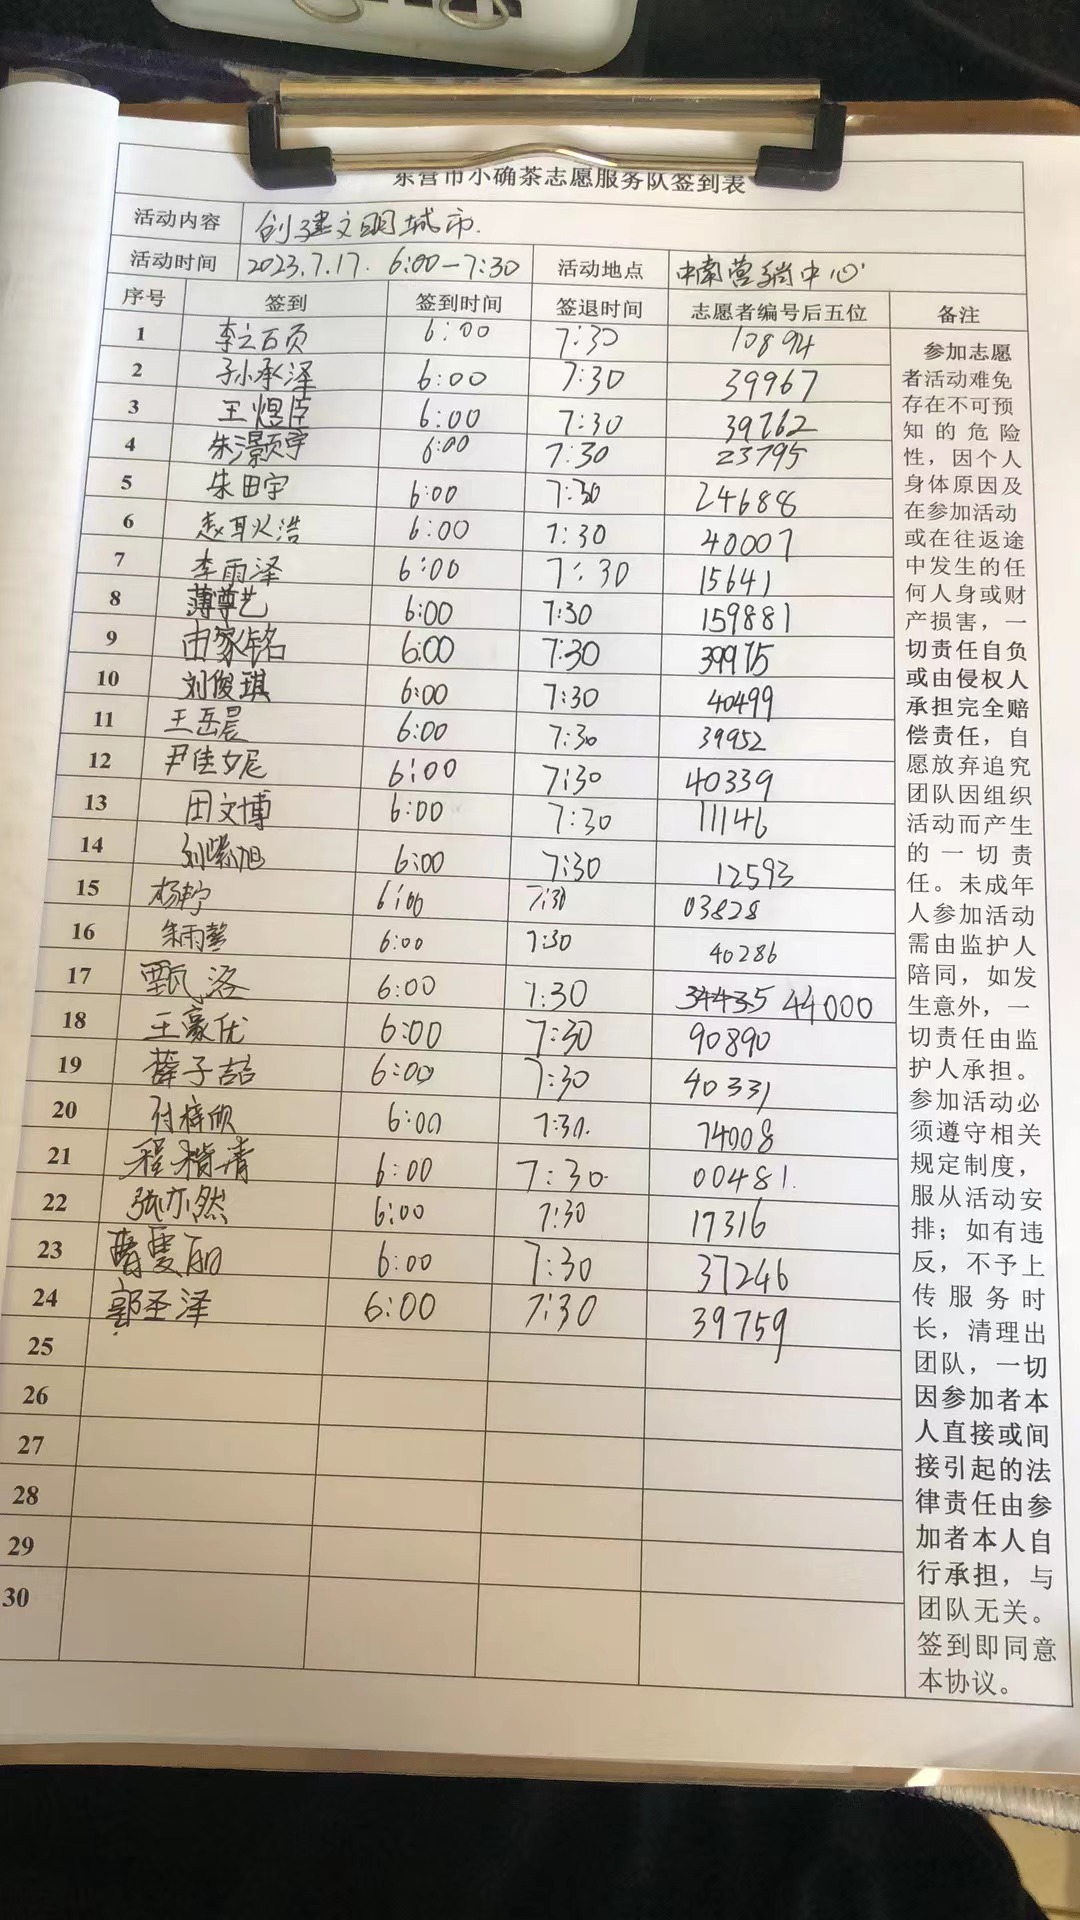 东营市小确茶志愿服务队签到表
活动内容 创建文明城市.
活动时间 2023.7.17. 6:00-7:30 活动地点 中南营销中心
序号 签到 签到时间 签退时间 志愿者编号后五位 备注
1 李之 6:00 7:30 10894
2 孙承泽 6:00 7:30 39967
3 王煜 6:00 7:30 39762
4 朱灏宇 6:00 7:30 23795
5 朱田宇 6:00 7:30 24688
6 赵耿浩 6:00 7:30 40007
7 李雨泽 6:00 7:30 15641
8 薄尊艺 6:00 7:30 159881
9 由家铭 6:00 7:30 39975
10 刘俊琪 6:00 7:30 40499
11 王岳晨 6:00 7:30 39952
12 尹佳妮 6:00 7:30 40339
13 田文博 6:00 7:30 11146
14 刘紫旭 6:00 7:30 12593
15 杨 6:00 7:30 03828
16 朱雨馨 6:00 7:30 40286
17 甄洛 6:00 7:30 34435 44000
18 王豪优 6:00 7:30 90890
19 薛子喆 6:00 7:30 40331
20 付梓欣 6:00 7:30. 74008
21 程楷清 6:00 7:30. 00481.
22 张亦然 6:00 7:30 17316
23 6:00 7:30 37246
24 郭圣泽 6:00 7:30 39759
25
26
27
28
29
30
参加志愿
者活动难免
存在不可预
知的危险
性，因个人
身体原因及
在参加活动
或在往返途
中发生的任
何人身或财
产损害，一
切责任自负
或由侵权人
承担完全赔
偿责任，自
愿放弃追究
团队因组织
活动而产生
的一切责
任。未成年
人参加活动
需由监护人
陪同，如发
生意外，一
切责任由监
护人承担。
参加活动必
须遵守相关
规定制度，
服从活动安
排；如有违
反，不予上
传服务时
长，清理出
团队，一切
因参加者本
人直接或间
接引起的法
律责任由参
加者本人自
行承担，与
团队无关。
签到即同意
本协议。